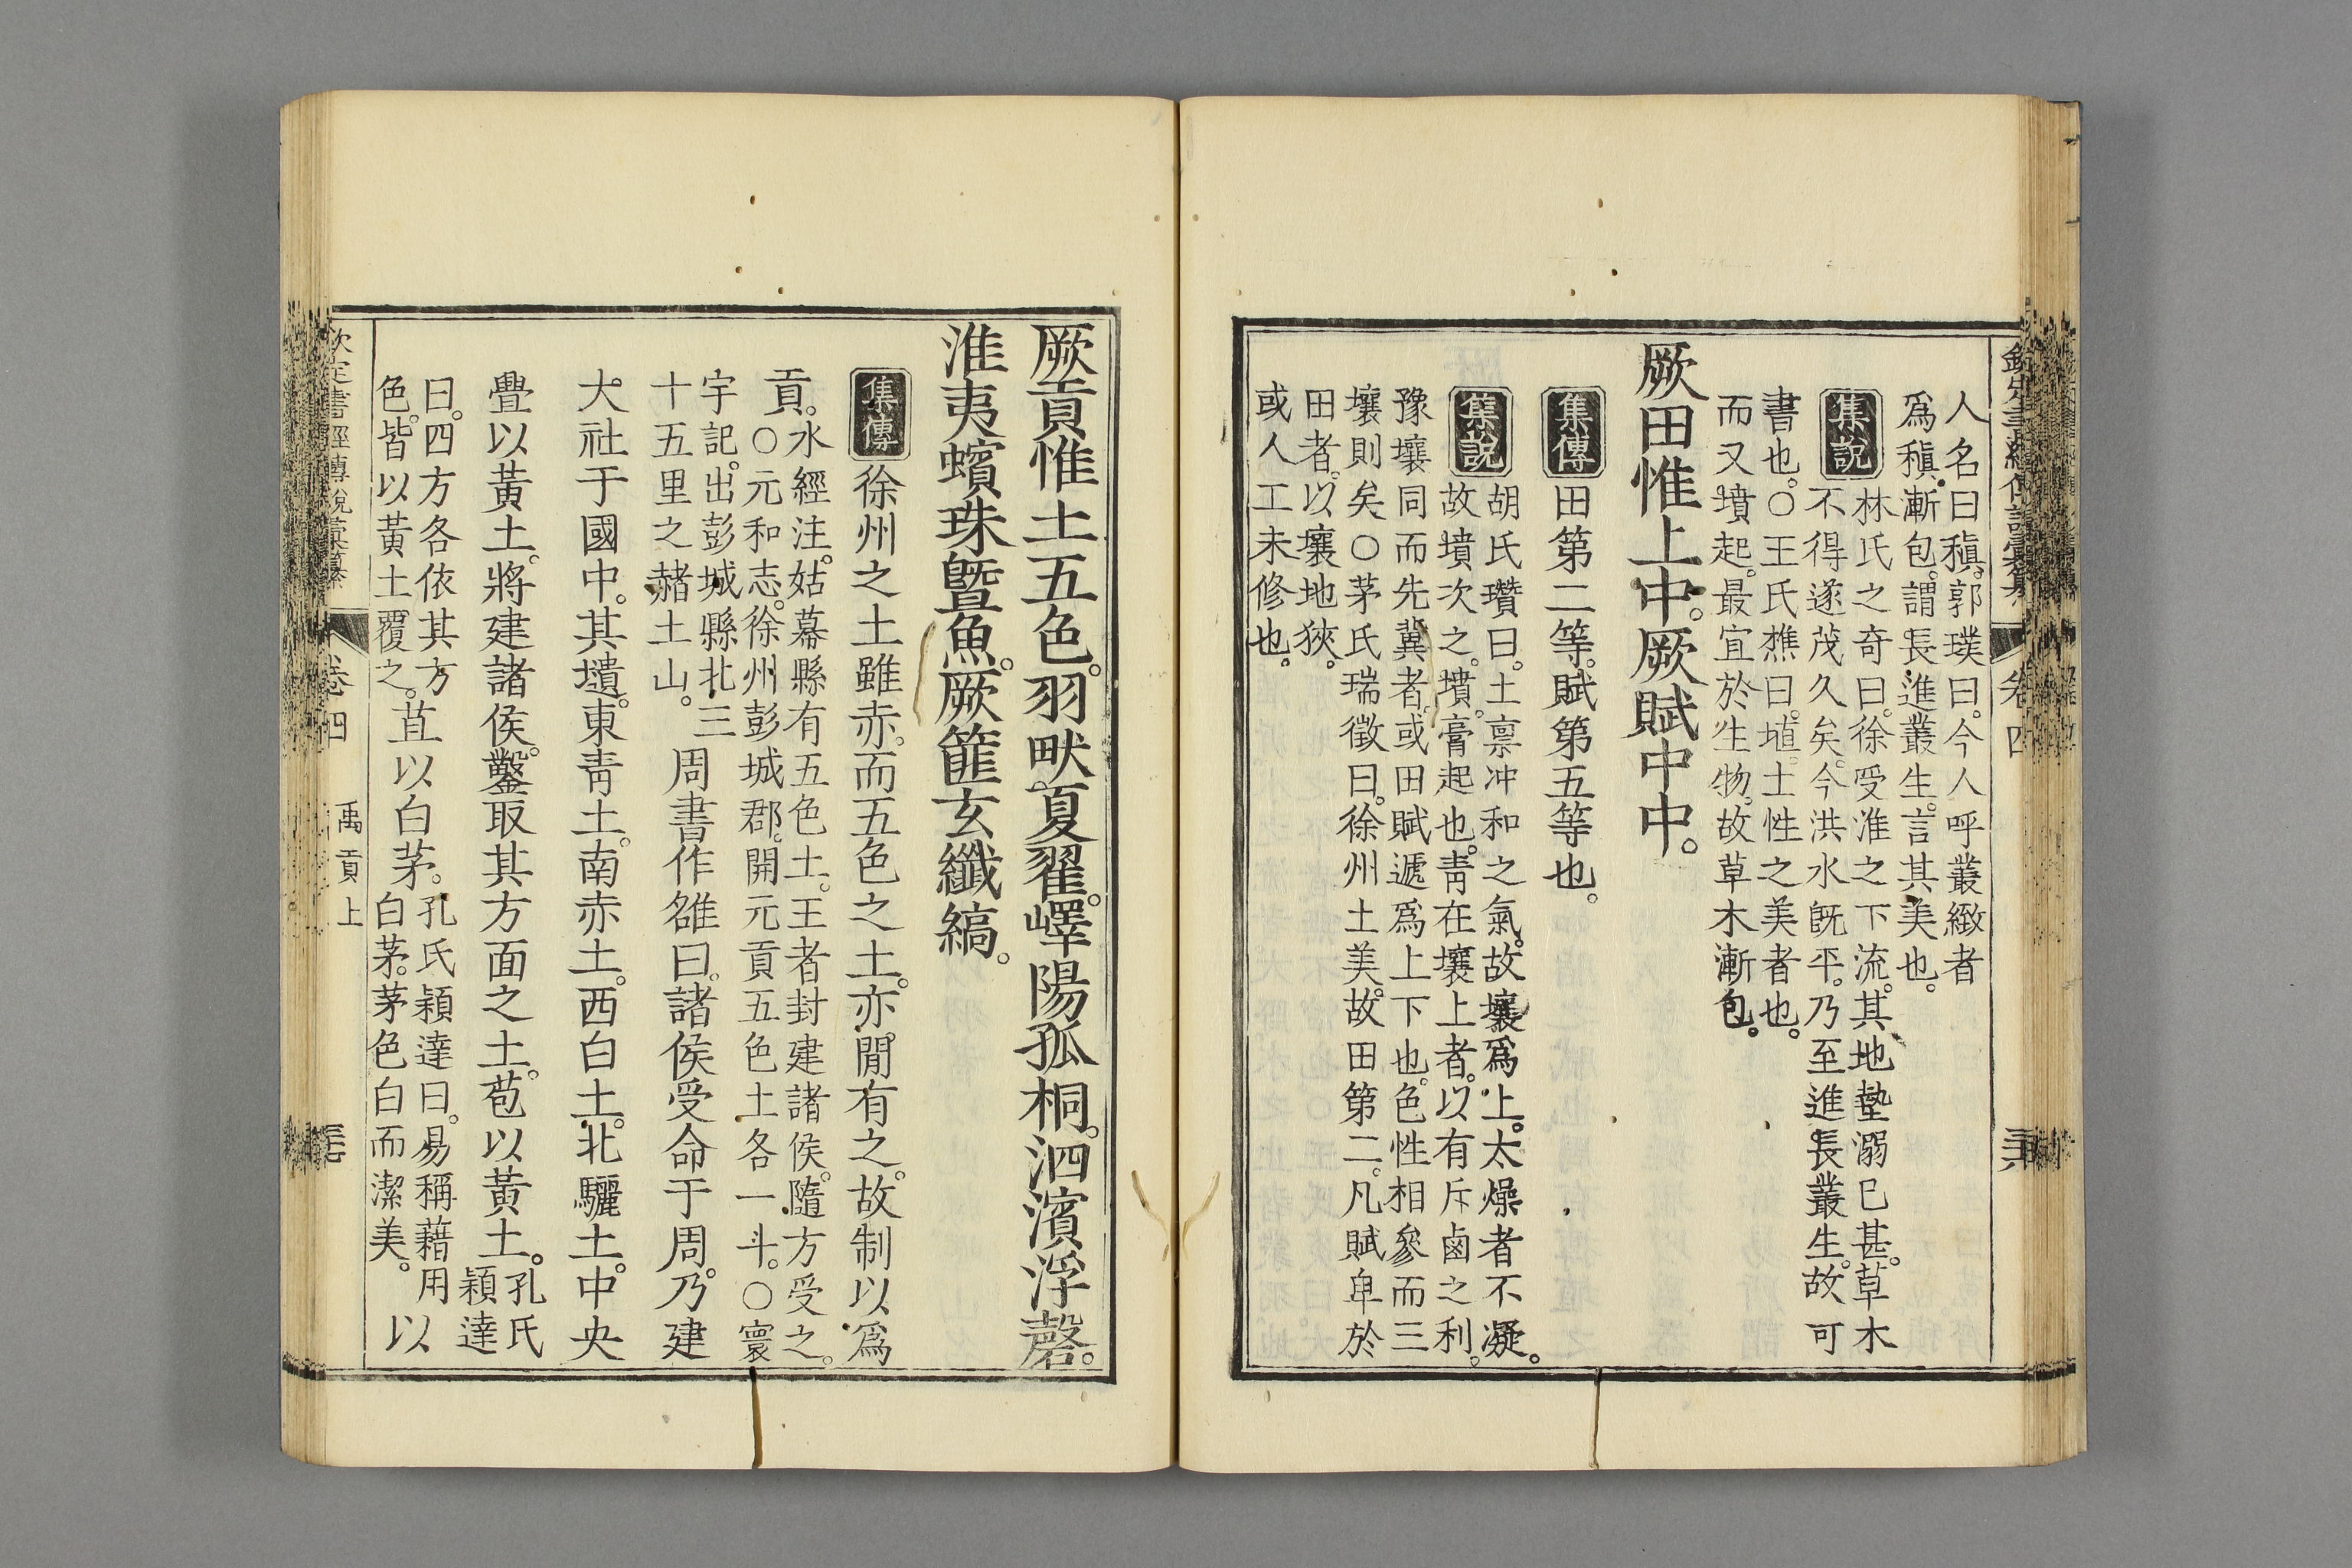 人名曰稹。郭璞曰。今人呼叢緻者
爲稹。漸包。謂長進叢生。言其美也。
集說
林氏之奇曰。徐受淮之下流。其地墊溺已甚。草木
不得遂茂久矣。今洪水旣平。乃至進長叢生。故可
書也。○王氏樵曰。埴。土性之美者也。
而又墳起。最宜於生物。故草木漸包。
厥田惟上中。厥賦中中。
集傳
田第二等。賦第五等也。
集說
胡氏瓚曰。土禀冲和之氣。故壤爲上。太燥者不凝。
故墳次之。墳。膏起也。靑在壤上者。以有斥鹵之利。
豫壤同而先冀者。或田賦遞爲上下也。色性相參而三
壤則矣○茅氏瑞徵曰。徐州土美。故田第二。凡賦卑於
田者。以壤地狹。
或人工未修也。
卷四
厥貢惟土五色。羽畎夏翟。嶧陽孤桐。泗濱浮磬。
淮夷蠙珠曁魚。厥篚玄纖縞。
集傳
徐州之土雖赤。而五色之土。亦閒有之。故制以爲
貢。
水經注。姑幕縣有五色土。王者封建諸侯。隨方受之。
○元和志。徐州彭城郡。開元貢五色土各一斗。○寰
宇記。出彭城縣北三
十五里之赭土山。
周書作雒曰。諸侯受命于周。乃建
大社于國中。其壝。東靑土。南赤土。西白土。北驪土。中央
疊以黃土。將建諸侯。鑿取其方面之土。苞以黃土。
孔氏
穎達
曰。四方各依其方
色。皆以黃土覆之。
苴以白茅。
孔氏穎達曰。易稱藉用
白茅。茅色白而潔美。
以
欽定書經傳說彙纂
卷四
禹貢上